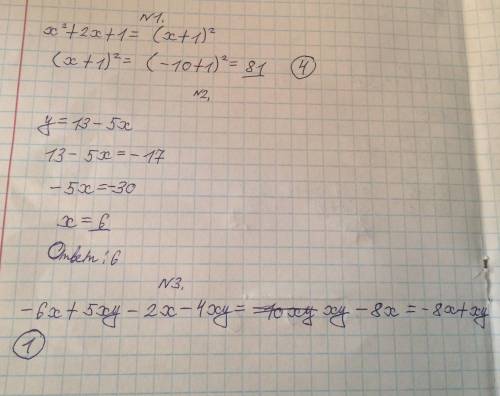 №1.
x²+2x+1= (x+1)²
(x+1)²= (-10+1)²= 81 (4)
№2.
y=13-5x
13-5x=-17
-5x=-30
x=6
Ответ: 6
№3.
-6x+5xy-2x-4xy= -10xy xy-8x=-8x+xy
(1)